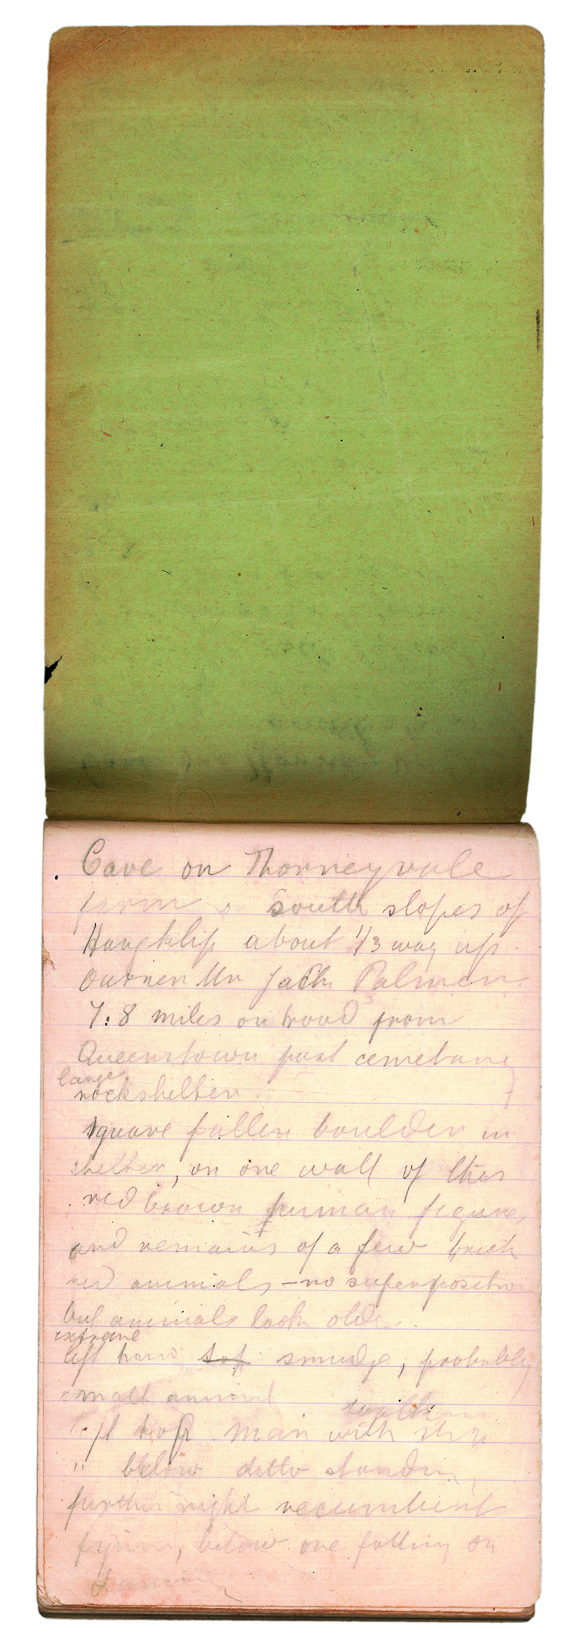 Cave on Thorneyvale
farm on south slopes of
Hangklip about 1/3 way up.
Owner Mr Jack Palmer.
7.8 miles on road from
Queenstown past cemetary
large
rockshelter.
square fallen boulder in
shelter, on one wall of this
red brown human figures
and remains of a few brick
red animals – no superposition
but animals look older.
extreme
left hand top smudge, probably
small animal
left top. Man with
" below ditto standing,
further right recumbent
figure, below one falling or